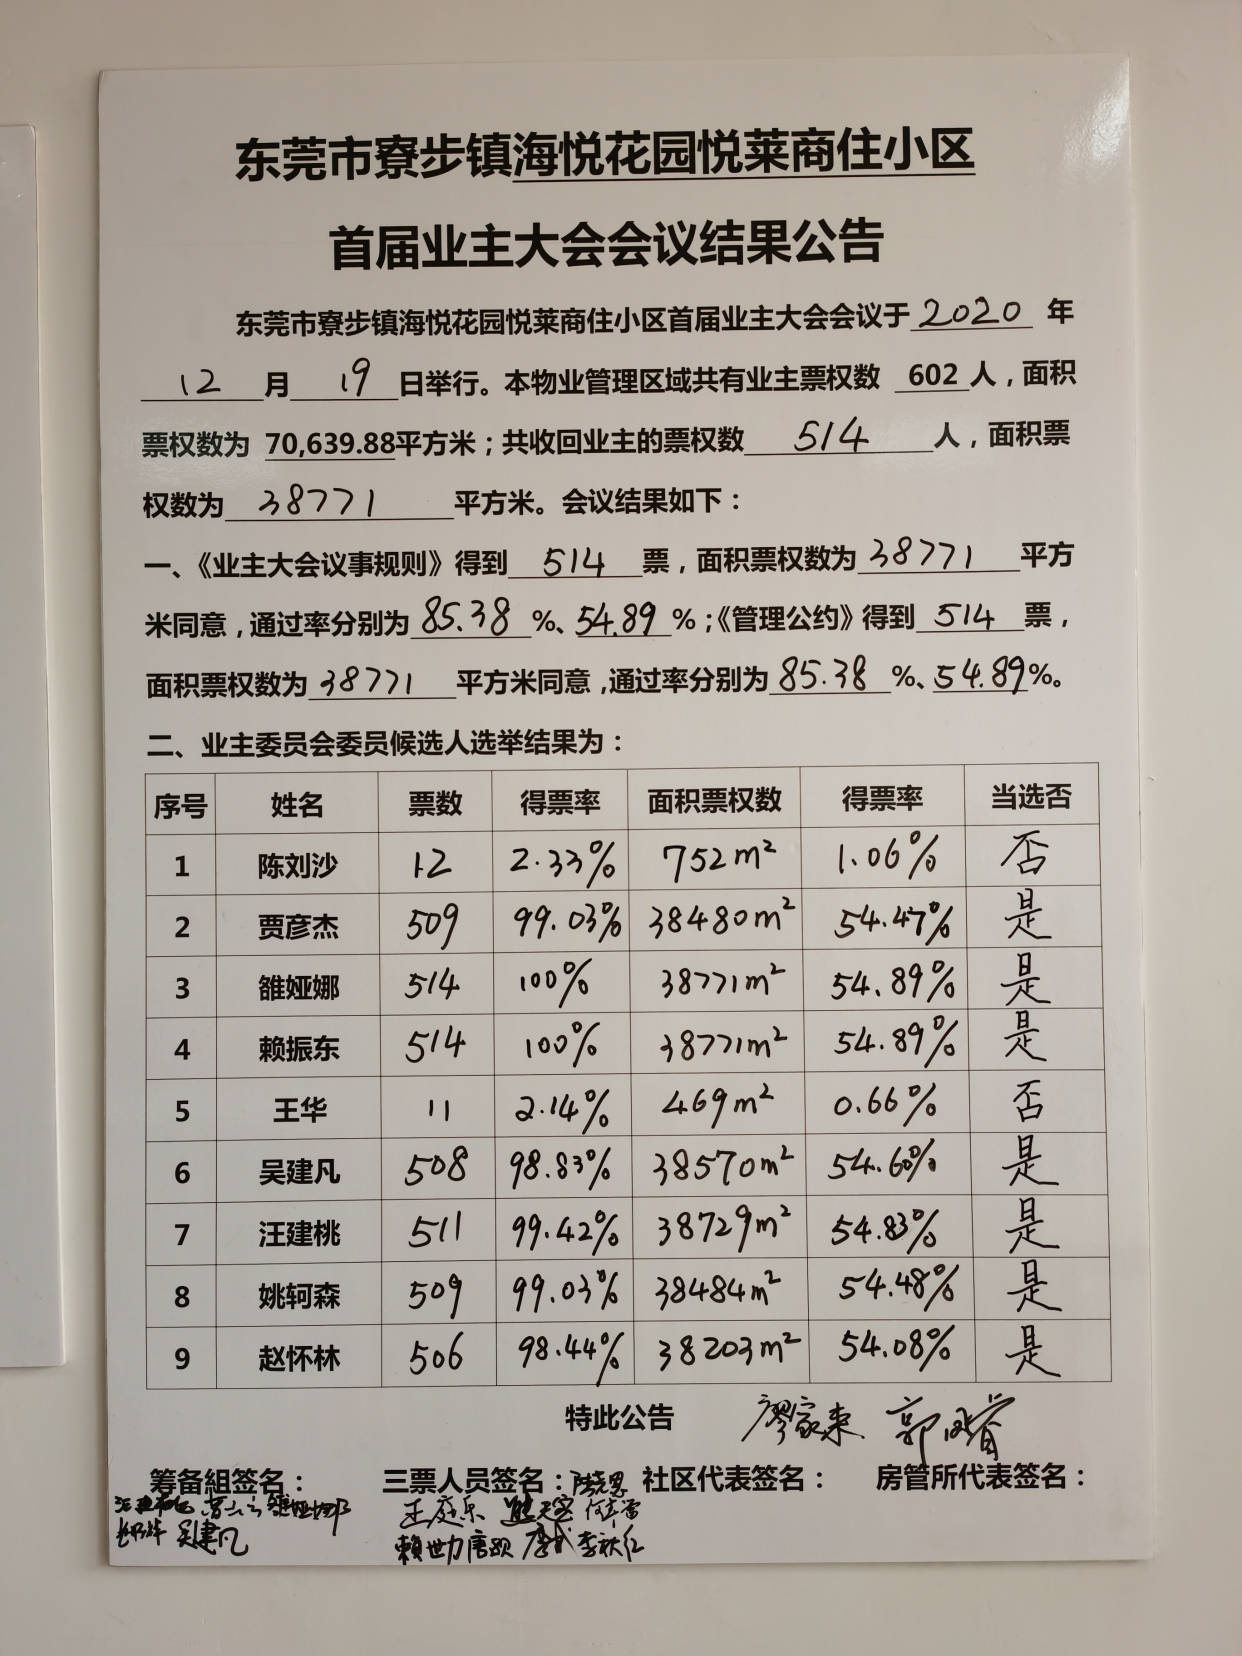 东莞市寮步镇海悦花园悦莱商住小区
首届业主大会会议结果公告
东莞市寮步镇海悦花园悦莱商住小区首届业主大会会议于2020 年
12 月 19 日举行。本物业管理区域共有业主票权数 602 人，面积
票权数为 70,639.88平方米；共收回业主的票权数 514 人，面积票
权数为 38771 平方米。会议结果如下：
一、《业主大会议事规则》得到 514 票，面积票权数为 38771 平方
米同意，通过率分别为 85.38 %、54.89 %；《管理公约》得到 514 票，
面积票权数为 38771 平方米同意，通过率分别为 85.38 %、54.89%。
二、业主委员会委员候选人选举结果为：
序号 姓名 票数 得票率 面积票权数 得票率 当选否
1 陈刘沙 12 2.33% 752m² 1.06% 否
2 贾彦杰 509 99.03% 38480m² 54.47% 是
3 雒娅娜 514 100% 38771m² 54.89% 是
4 赖振东 514 100% 38771m² 54.89% 是
5 王华 11 2.14% 469m² 0.66% 否
6 吴建凡 508 98.83% 38570m² 54.60% 是
7 汪建桃 511 99.42% 38729m² 54.83% 是
8 姚轲森 509 99.03% 38484m² 54.48% 是
9 赵怀林 506 98.44% 38203m² 54.08% 是
特此公告 廖家来
筹备组签名： 三票人员签名： 社区代表签名： 房管所代表签名：
王庭乐
吴建凡 赖世力 唐跃 李秋红